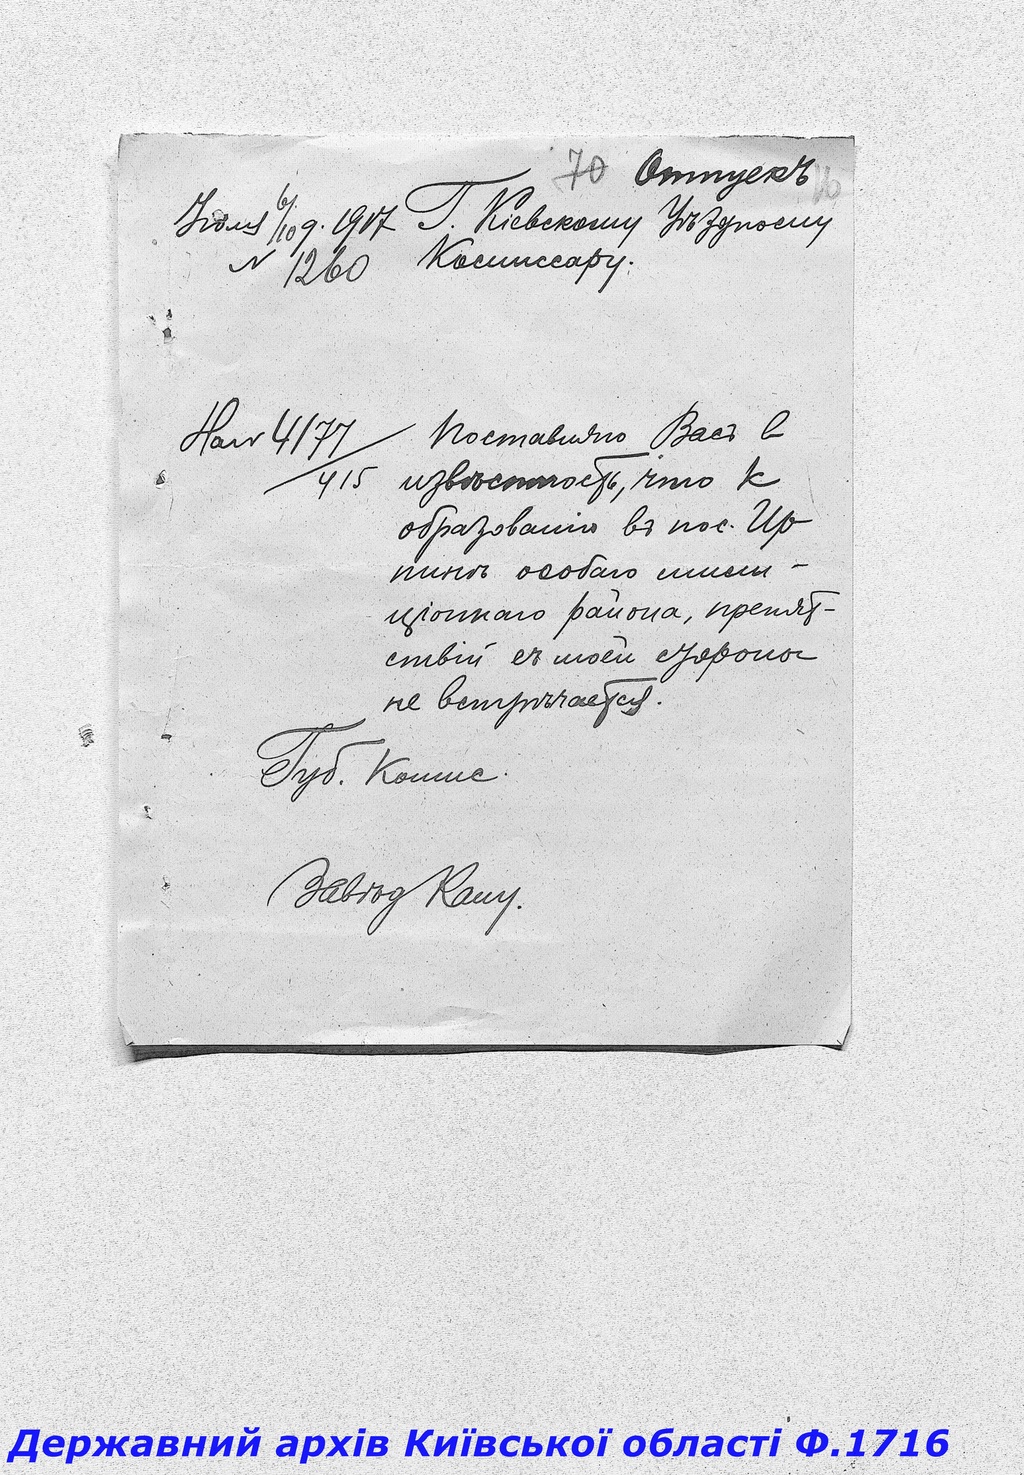 70 Отпускъ
Іюля 6/10 д. 1917 Г. Кіевскому Уѣздному
N 1260 Комиссару.
На N 4177/415 Поставляю Васъ в
извѣстность, что к
образованію въ пос. Ир
пинѣ особаго мили-
ціоннаго района, препят-
ствій съ моей стороны
не встрѣчается.
Губ. Комис.
Завѣд Канц.
Державний архів Київської області Ф.1716